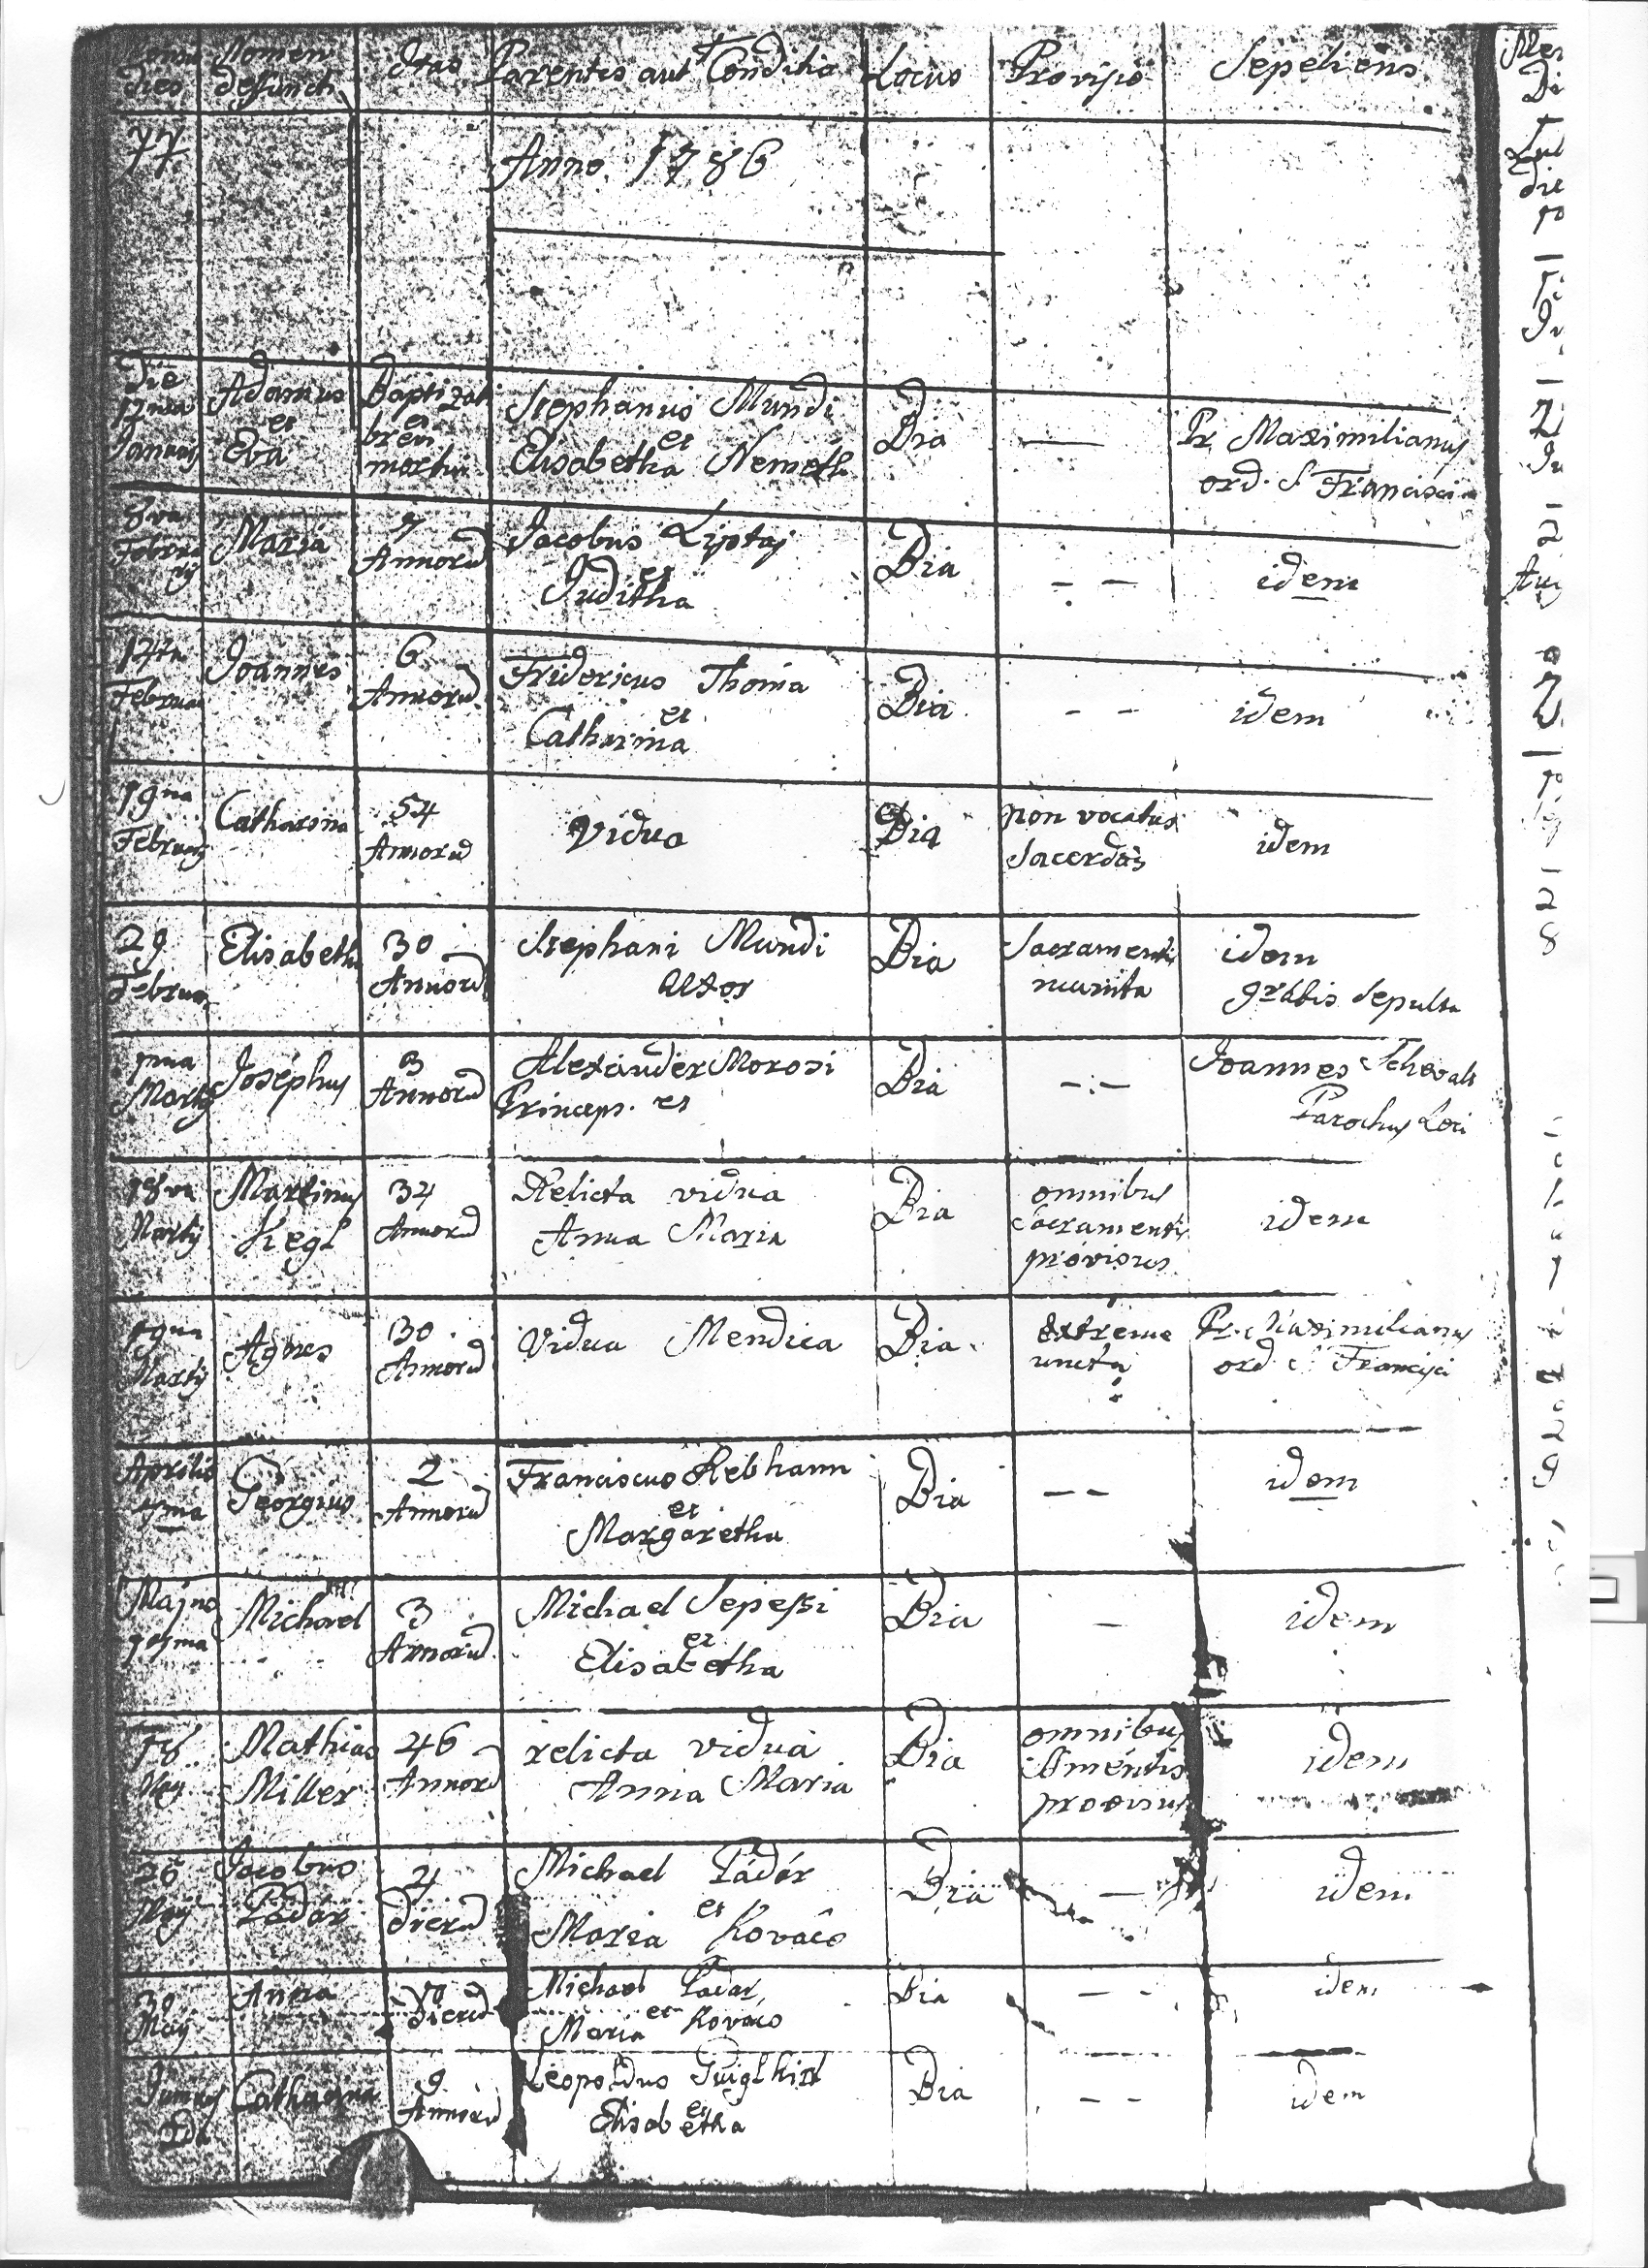 dies
Nomen
defuncti
Ætas
Parentes aut Conditio
Locus
Provisio
Sepeliens
77
Anno 1786
Die
17ma
January
Adamus
et
Eva
Baptizati
et
brevi
mortui
Stephanus Mundi
et
Elisabetha Nemeth
Bia
—
Pr. Maximilianus
ord. S. Francisci
8va
Februa
rij
Maria
7
Annorū
Jacobus Liptaj
et
Juditha
Bia
- -
idem
Februar
Joannes
6
Annorū
Fridericus Thoma
et
Catharina
Bia
- -
idem
19na
Februarij
Catharina
54
Annorū
Vidua
Bia
non vocatus
Sacerdos
idem
29
Februar
Elisabetha
30
Annorū
Stephani Mundi
Uxor
Bia
Sacramentis
munita
idem
gratis sepulta
1ma
Martij
Josephus
3
Annorū
Alexander Morosi
Princeps. et
Bia
-:-
Joannes
Parochus Loci
18va
Martij
Martinus
34
Annorū
Relicta vidua
Anna Maria
Bia
omnibus
Sacramentis
provisus
idem
19na
Martij
Agnes
30
Annorū
Vidua Mendica
Bia
extreme
uncta
Pr. Maximilianus
ord. S. Francisci
Aprilis
Georgius
2
Annorū
Franciscus Rebhann
et
Margaretha
Bia
- -
idem
Michael
3
Annorū
Michael Sepeßi
et
Elisabetha
Bia
-
idem
18
Maij
Mathias
Miller
46
Annorū
relicta vidua
Anna Maria
Bia
omnibus
Smentis
provisus
idem
26
Maij
Jacobus
Pádár
4
dierū
Michael Pádár
et
Maria Kovács
Bia
—
idem
30
Maij
Anna
dierū
Michael Padar
et
Maria Kovács
Bia
- -
idem
Catharina
9
Annorū
Leopoldus
et
Elisabetha
Bia
- -
idem